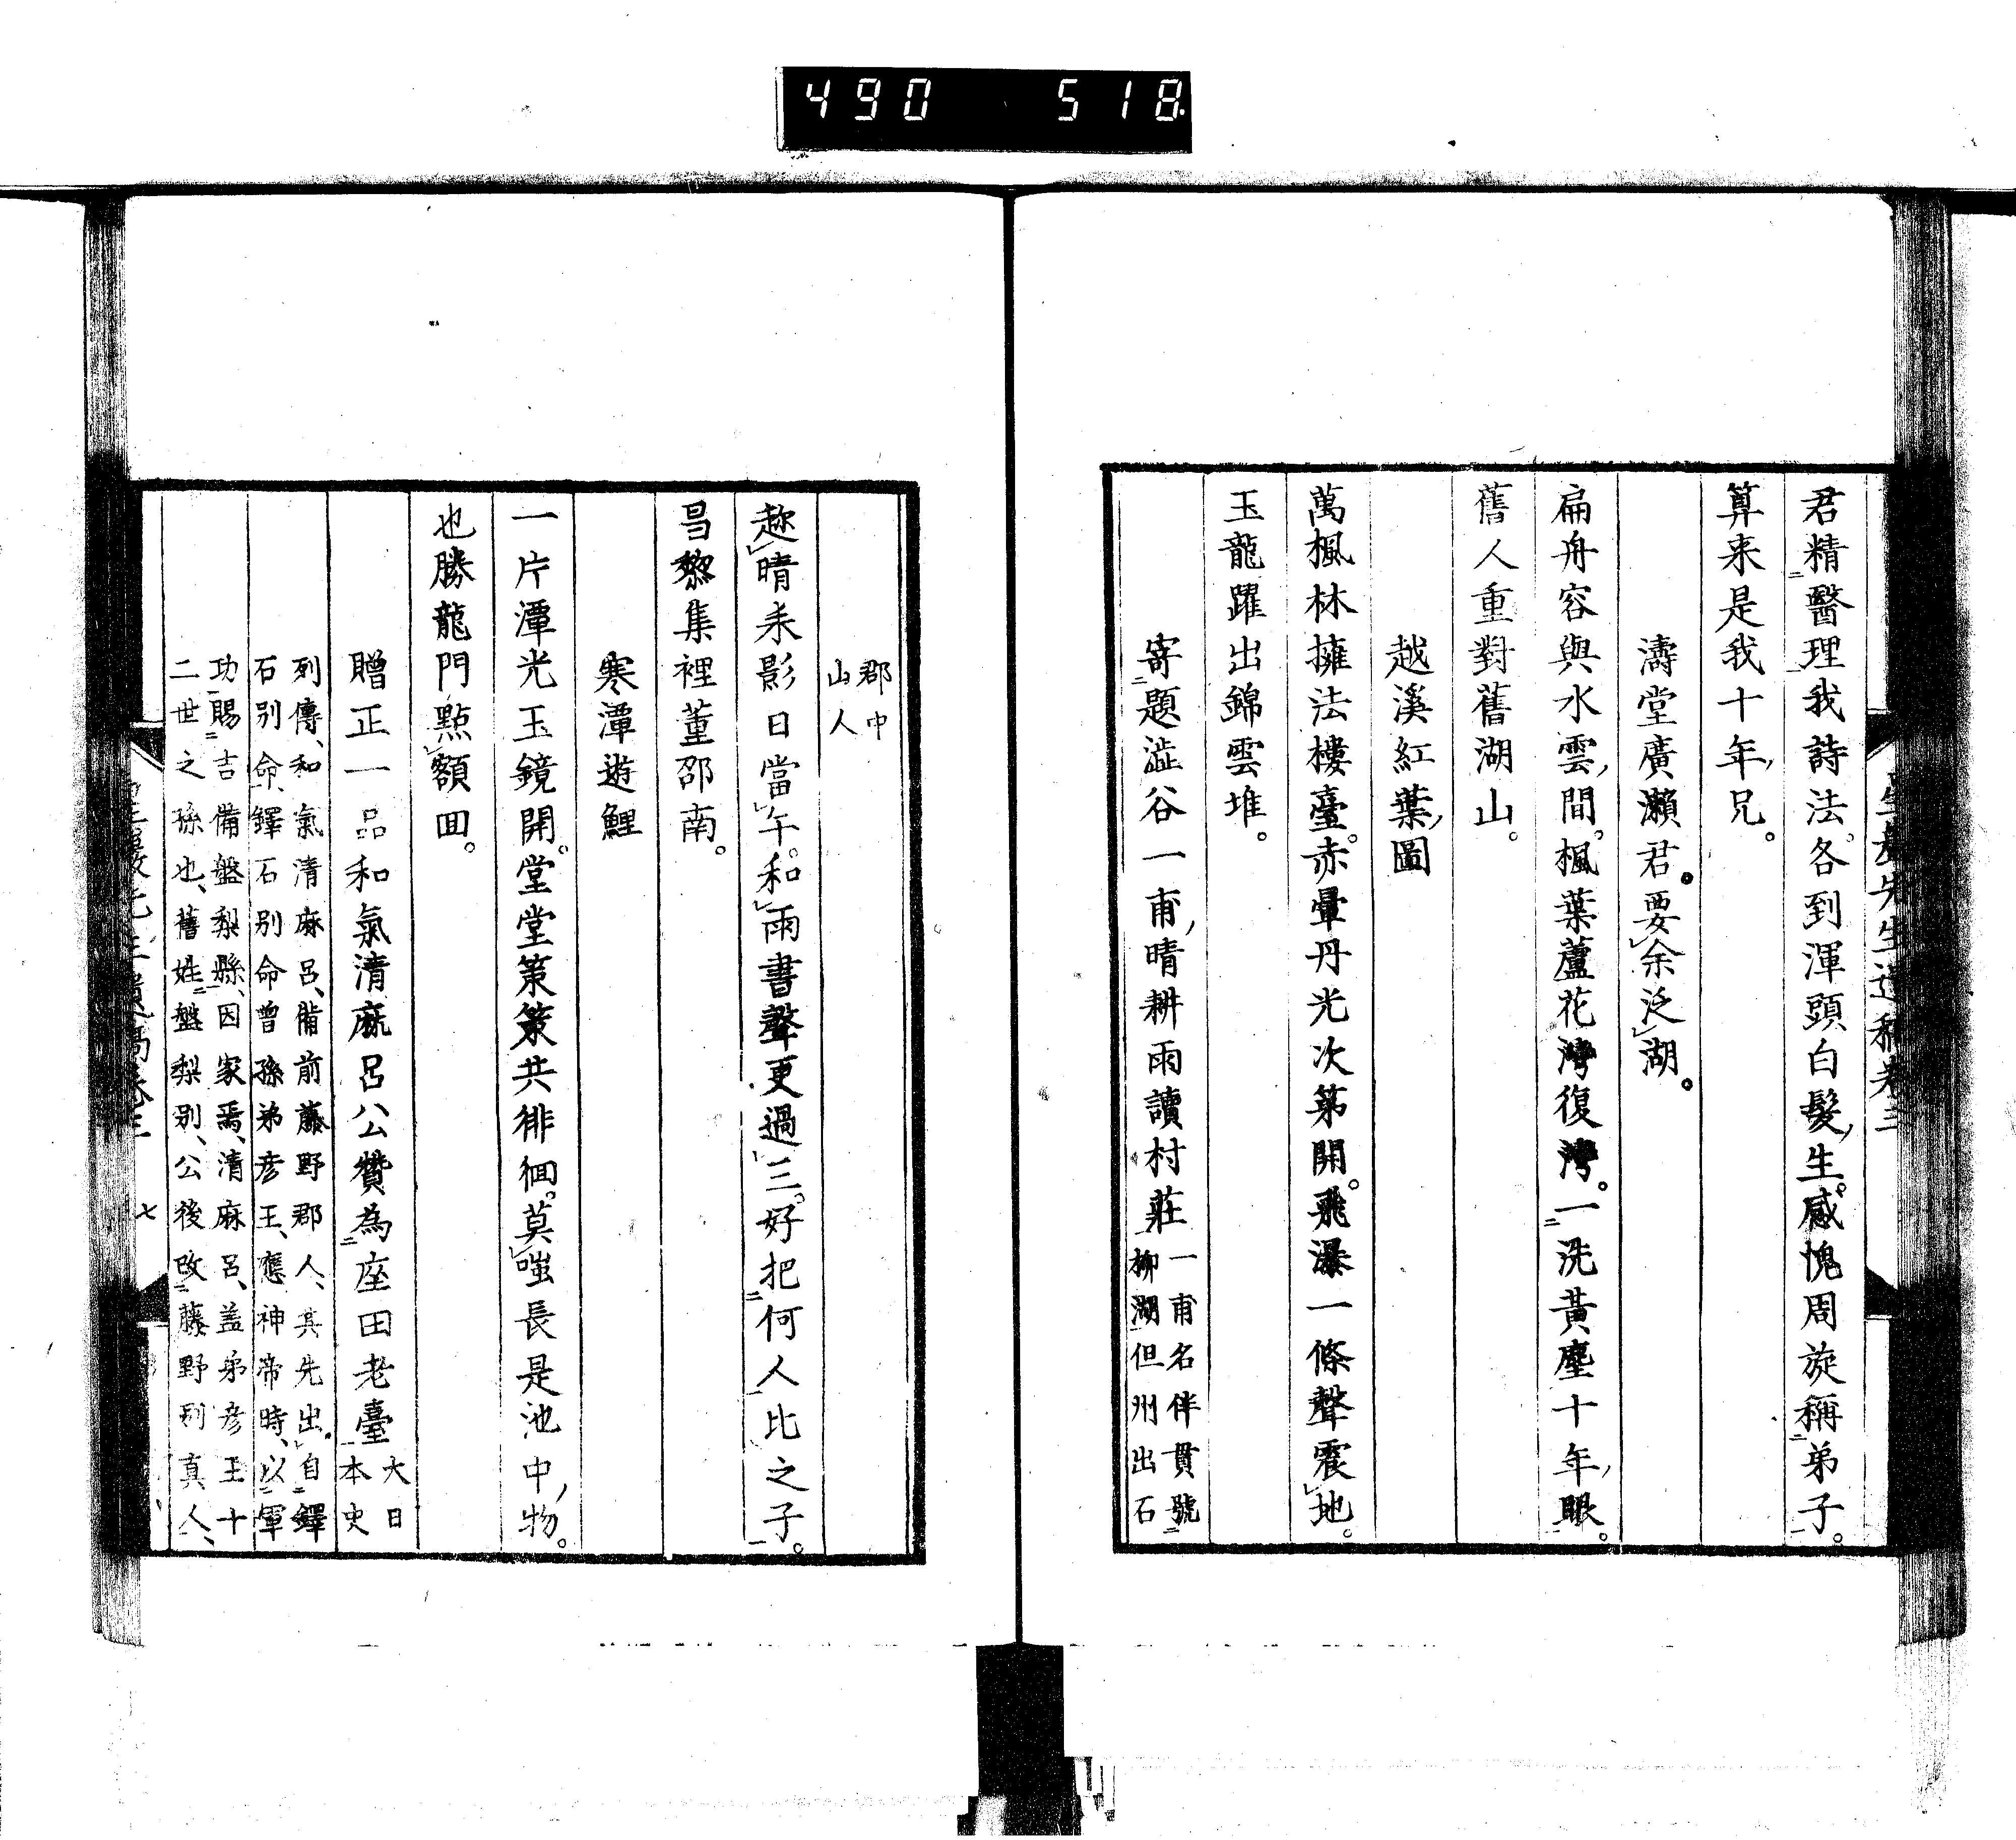 490 518
君精醫理我詩法。各到渾頭白髮生。感愧周旋稱弟子。
算来是我十年兄。
濤堂廣瀨君。要余泛湖。
扁舟容與水雲間。楓葉蘆花灣復灣。一洗黃塵十年眼。
舊人重對舊湖山。
越溪紅葉圖
萬楓林擁法樓臺。赤暈丹光次第開。飛瀑一條聲震地。
玉龍躍出錦雲堆。
寄題澁谷一甫晴耕雨讀村莊
一甫名伴貫號
柳湖但州出石
郡中
山人
趂晴禾影日當午。和雨書聲更過三。好把何人比之子。
昌黎集裡董邵南。
寒潭遊鯉
一片潭光玉鏡開。堂堂策策共徘徊。莫嗤長是池中物。
也勝龍門點額回。
贈正一品和氣清麻呂公贊為座田老臺
大日
本史
列傳、和氣清麻呂、備前藤野郡人、其先出自鐸
石別命、鐸石別命曾孫弟彦王、應神帝時、以軍
功賜吉備盤梨縣、因家焉、清麻呂、盖弟彦王十
二世之孫也、舊姓盤梨別、公後改藤野別真人、
七